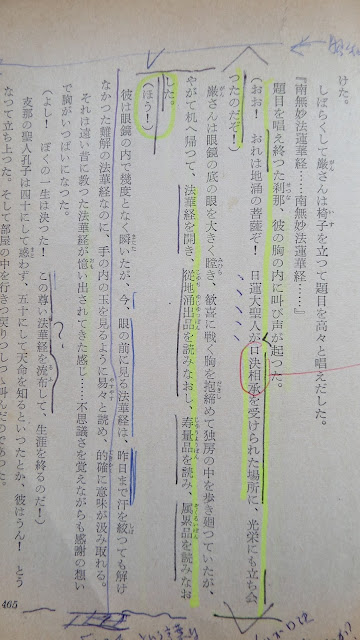 けた。
しばらくして巌さんは椅子を立つて題目を高々と唱えだした。
『南無妙法蓮華経……南無妙法蓮華経……』
題目を唱え終つた刹那、彼の胸の内に叫び声が起つた。
(おお! おれは地涌の菩薩ぞ! 日蓮大聖人が口決相承を受けられた場所に、光栄にも立ち会
つたのだぞ!)
巌さんは眼鏡の底の眼を大きく睜き、歓喜に戦く胸を抱締めて独房の中を歩き廻つていたが、
やがて机へ帰つて、法華経を開き、従地涌出品を読みなおし、寿量品を読み、属累品を読みなお
した。
(ほう!)
彼は眼鏡の内で幾度となく瞬いたが、今、眼の前に見る法華経は、昨日まで汗を絞つても解け
なかつた難解の法華経なのに、手の内の玉を見るように易々と読め、的確に意味が汲み取れる。
それは遠い昔に教つた法華経が憶い出されてきた感じ……不思議さを覚えながらも感謝の想い
で胸がいつぱいになつた。
(よし! ぼくの一生は決つた! この尊い法華経を流布して、生涯を終るのだ!)
支那の聖人孔子は四十にして惑わず、五十にして天命を知るといつたとか、彼はうん! とう
なつて立ち上つた。そして部屋の中を行きつ戻りつしつつ叫んだのであつた。
465